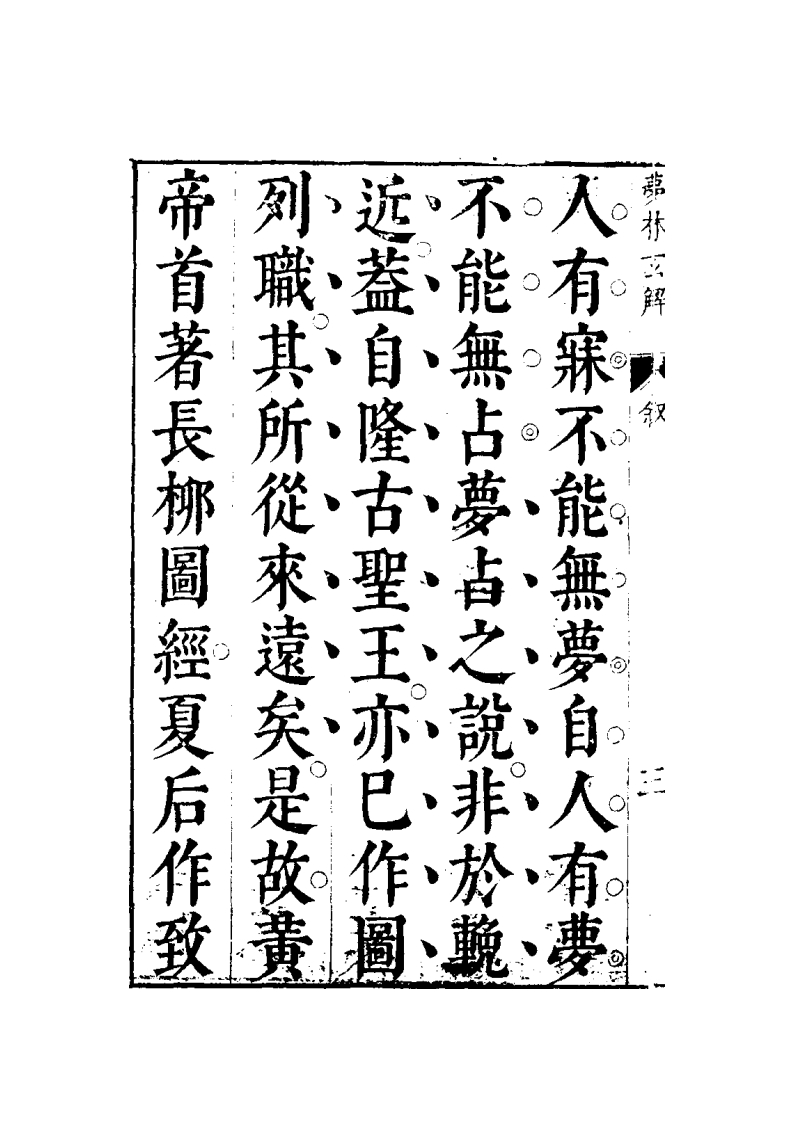 夢林玄解 叙 三
人有寐不能無夢自人有夢
不能無占夢占之說非於輓
近蓋自隆古聖王亦巳作圖
列職其所從來遠矣是故黃
帝首著長柳圖經夏后作致